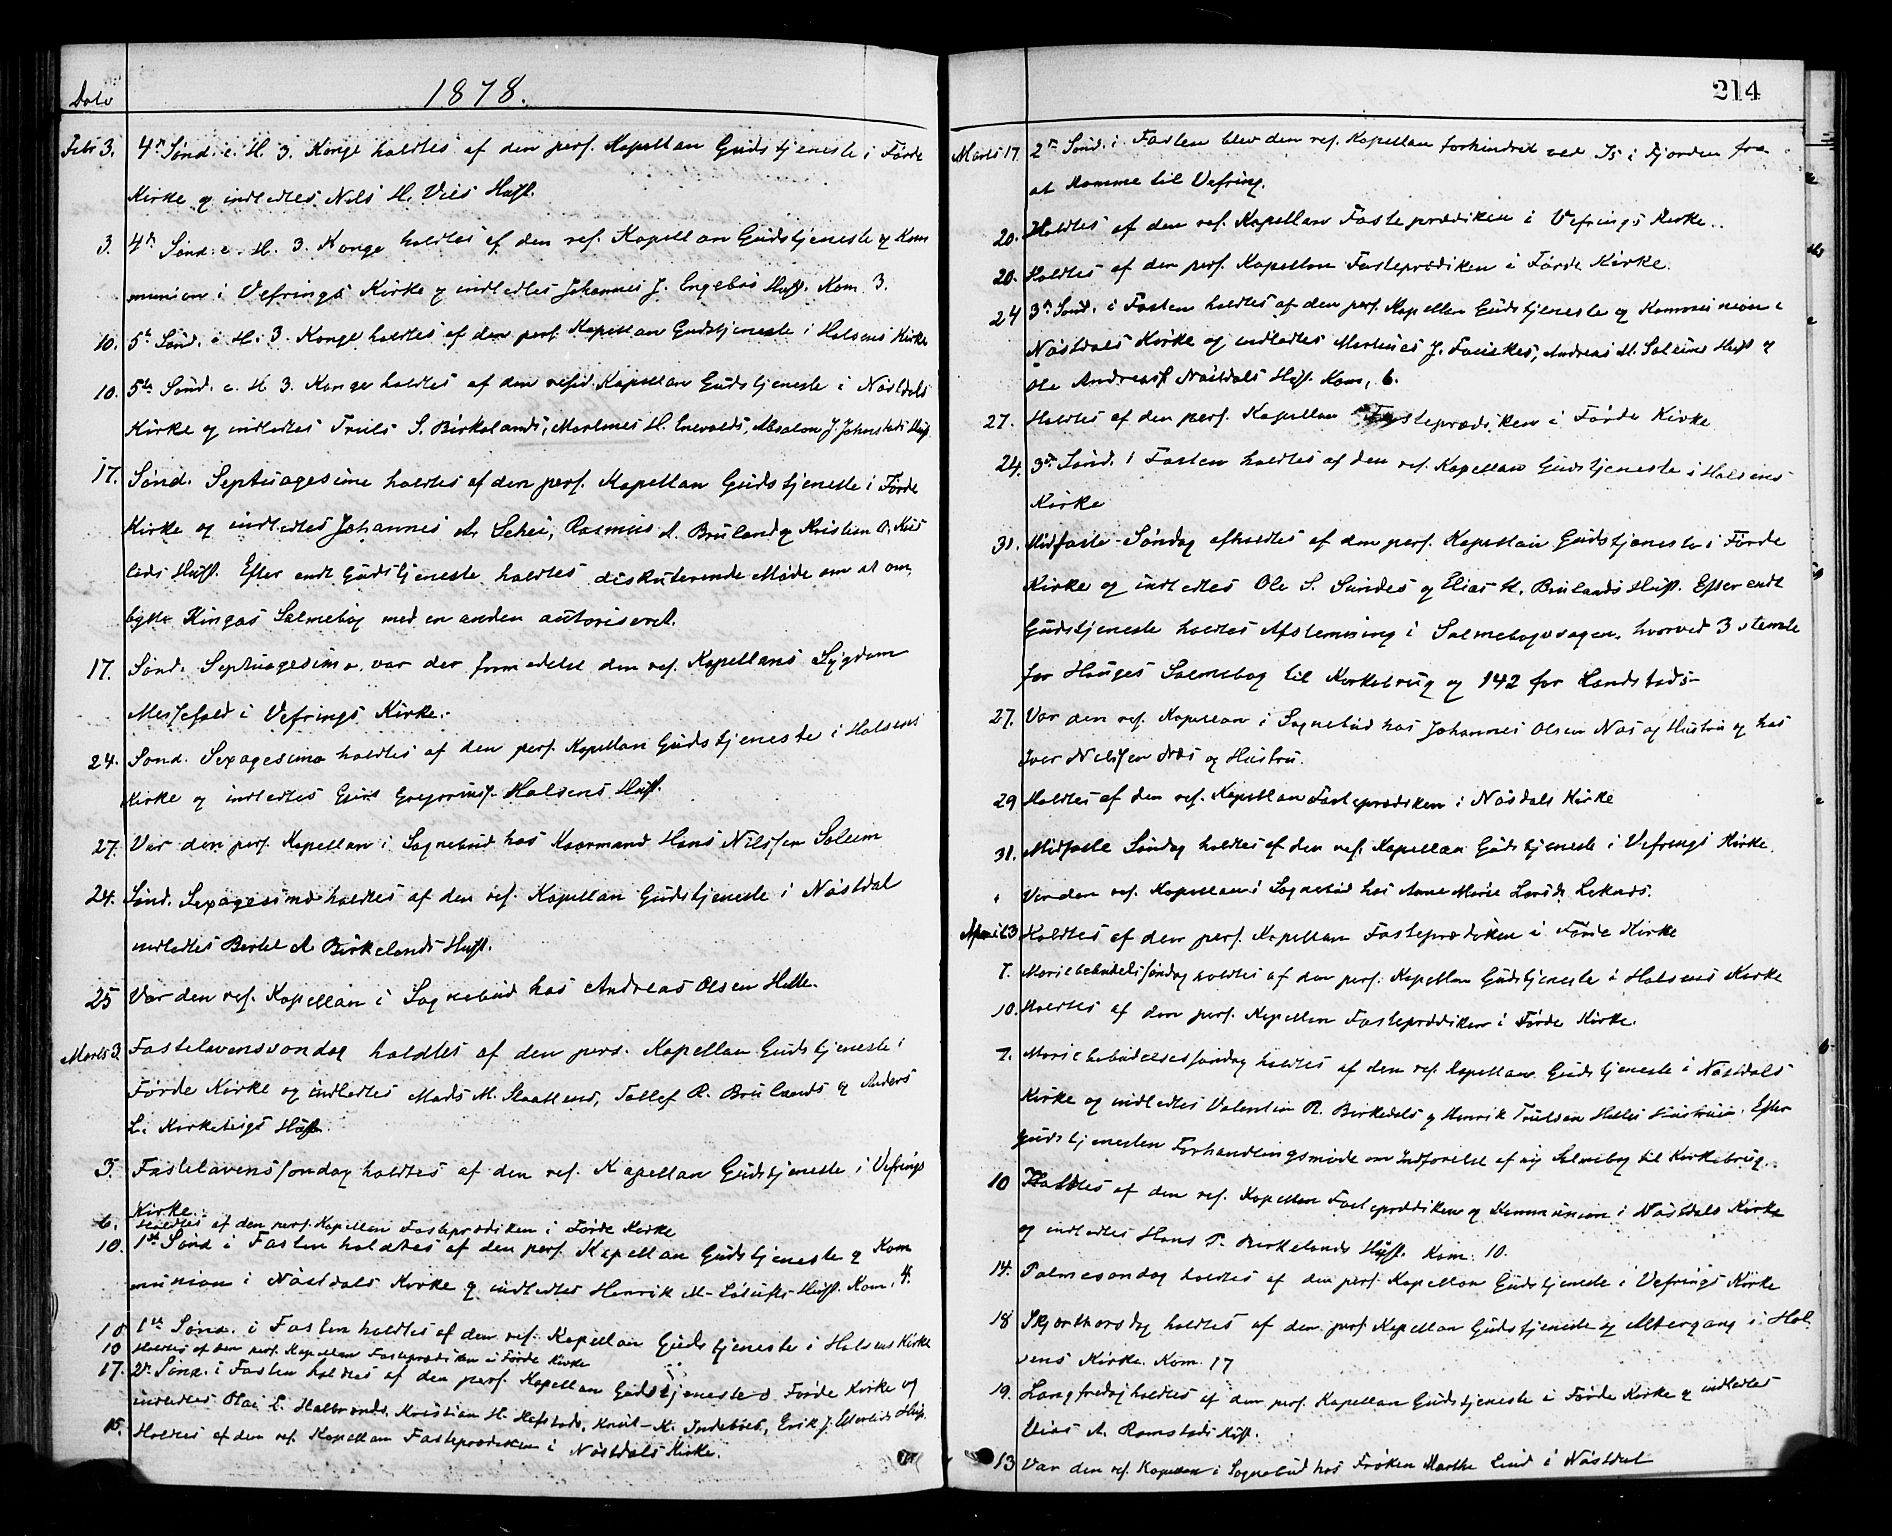 Dato
1878.
Febr 3. 4de Sønd. e. H. 3. Konge holdtes af den pers. Kapellan Gudstjeneste i Førde
Kirke og indledtes Nils H. Vies Hust.
3. 4de Sønd. e. H. 3. Konge holdtes af den res. Kapellan Gudstjeneste og Kom
munion i Vefrings Kirke og indledtes Johannes J. Engebøs Hust. Kom. 3.
10. 5te Sønd. e. H. 3. Konge holdtes af den pers. Kapellan Gudstjeneste i Holsens Kirke
10. 5te Sønd. e. H. 3. Konge holdtes af den resid. Kapellan Gudstjeneste i Nøstdals
Kirke og indledtes Truls S. Birkelands, Martinus H. Absalon J. Hust.
17. Sønd. Septuagesima holdtes af den pers. Kapellan Gudstjeneste i Førde
Kirke og indledtes Johannes A. Schei, Rasmus A. Bruland og Kristen O.
lids Hust. Efter endt Gudstjeneste holdtes diskuterende Møde om at om
bytte Kingos Salmebog med en anden autoriseret.
17. Sønd. Septuagesima var der formedelst den res. Kapellans Sygdom
Messefald i Vefrings Kirke.
24. Sønd. Sexagesima holdtes af den pers. Kapellan Gudstjeneste i Holsens
Kirke og indledtes Holsens Hust.
27. Var den pers. Kapellan i Sognebud hos Kaarmand Hans Nilssen Soleim
24. Sønd. Sexagesima holdtes af den res. Kapellan Gudstjeneste i Nøstdal
indledtes Bertel A Birkelands Hust.
25 Var den res. Kapellan i Sognebud hos Andreas Olsen Helle.
Marts 3 Fastelavenssondag holdtes af den pers. Kapellan Gudstjeneste i
Førde Kirke og indledtes Mads M. Tollef R. Brulands og Anders
L. Kirketeigs Hust.
3. Fastelavenssondag holdtes af den res. Kapellan Gudstjeneste i Vefrings
Kirke.
6. Holdtes af den pers. Kapellan Fasteprædiken i Førde Kirke
10. 1ste Sønd i Fasten holdtes af den pers. Kapellan Gudstjeneste og Kom
munion i Nøstdals Kirke og indledtes Henrik M. Hust. Kom. 4.
10 1ste Sønd. i Fasten holdtes af den res. Kapellan Gudstjeneste i Holsens Kirke
10 Holdtes af den pers. Kapellan Fasteprædiken i Førde Kirke
17. 2den Sønd. i Fasten holdtes af den pers. Kapellan Gudstjeneste i Førde Kirke og
indledtes Olai L. Halbrends, Kristian H. Hafstads, Knut K. Indebøes, Erik J. Hust.
15. Holdtes af den res. Kapellan Fasteprædiken i Nøstdals Kirke.
214
Marts 17. 2den Sønd. i Fasten blev den res. Kapellan forhindret ved Is i Fjorden fra
at komme til Vefring.
20. Holdtes af den res. Kapellan Fasteprædiken i Vefrings Kirke.
20. Holdtes af den pers. Kapellan Fasteprædiken i Førde Kirke.
24 3die Sønd. i Fasten holdtes af den pers. Kapellan Gudstjeneste og Kommunion i
Nøstdals Kirke og indledtes Martinus J. Andreas M. Soleims Hust og
Ole Andreass Nøstdals Hust. Kom. 6.
27. Holdtes af den pers. Kapellan Fasteprædiken i Førde Kirke
24. 3die Sønd. i Fasten holdtes af den res. Kapellan Gudstjeneste i Holsens
Kirke
31. Midfaste-Søndag afholdtes af den pers. Kapellan Gudstjeneste i Førde
Kirke og indledtes Ole S. Sundes og Elias H. Brulands Hust. Efter endt
Gudstjeneste holdtes Afstemning i Salmebogssagen, hvorved 3 stemte
for Hauges Salmebog til Kirkebrug og 142 for Landstads-
27. Var den res. Kapellan i Sognebud hos Johannes Olsen Næs og Hustru og hos
Iver Nilssen Næs og Hustru.
29 Holdtes af den res. Kapellan Fasteprædiken i Nøsdals Kirke
31. Midfaste Søndag holdtes af den res. Kapellan Gudstjeneste i Vefrings Kirke.
Var den res. Kapellan i Sognebud hos Anne Marie Larsdr.
April 3 Holdtes af den pers. Kapellan Fasteprædiken i Førde Kirke
7. Mariebebudelsessøndag holdtes af den pers. Kapellan Gudstjeneste i Holsens Kirke
10. Holdtes af den pers. Kapellan Fasteprædiken i Førde Kirke.
7. Mariebebudelsessøndag holdtes af den res. Kapellan Gudstjeneste i Nøstdals
Kirke og indledtes Valentin R. Birkedals og Henrik Trulsen Helles Hustruer. Efter
Gudstjenesten Forhandlingsmøde om Indførelse af ny Salmebog til Kirkebrug.
10 Holdtes af den res. Kapellan Fasteprædiken og Kommunion i Nøstdals Kirke
og indledtes Hans P. Birkelands Hust. Kom. 10.
14. Palmesøndag holdtes af den pers. Kapellan Gudstjeneste i Vefrings Kirke
18 Skjærthorsdag holdtes af den pers. Kapellan Gudstjeneste og Altergang i Hol
sens Kirke. Kom. 17
19. Langfredag holdtes af den pers. Kapellan Gudstjeneste i Førde Kirke og indledtes
Elias A. Ramstads Hust.
13 Var den res. Kapellan i Sognebud hos Frøken Marthe Lind i Nøstdal